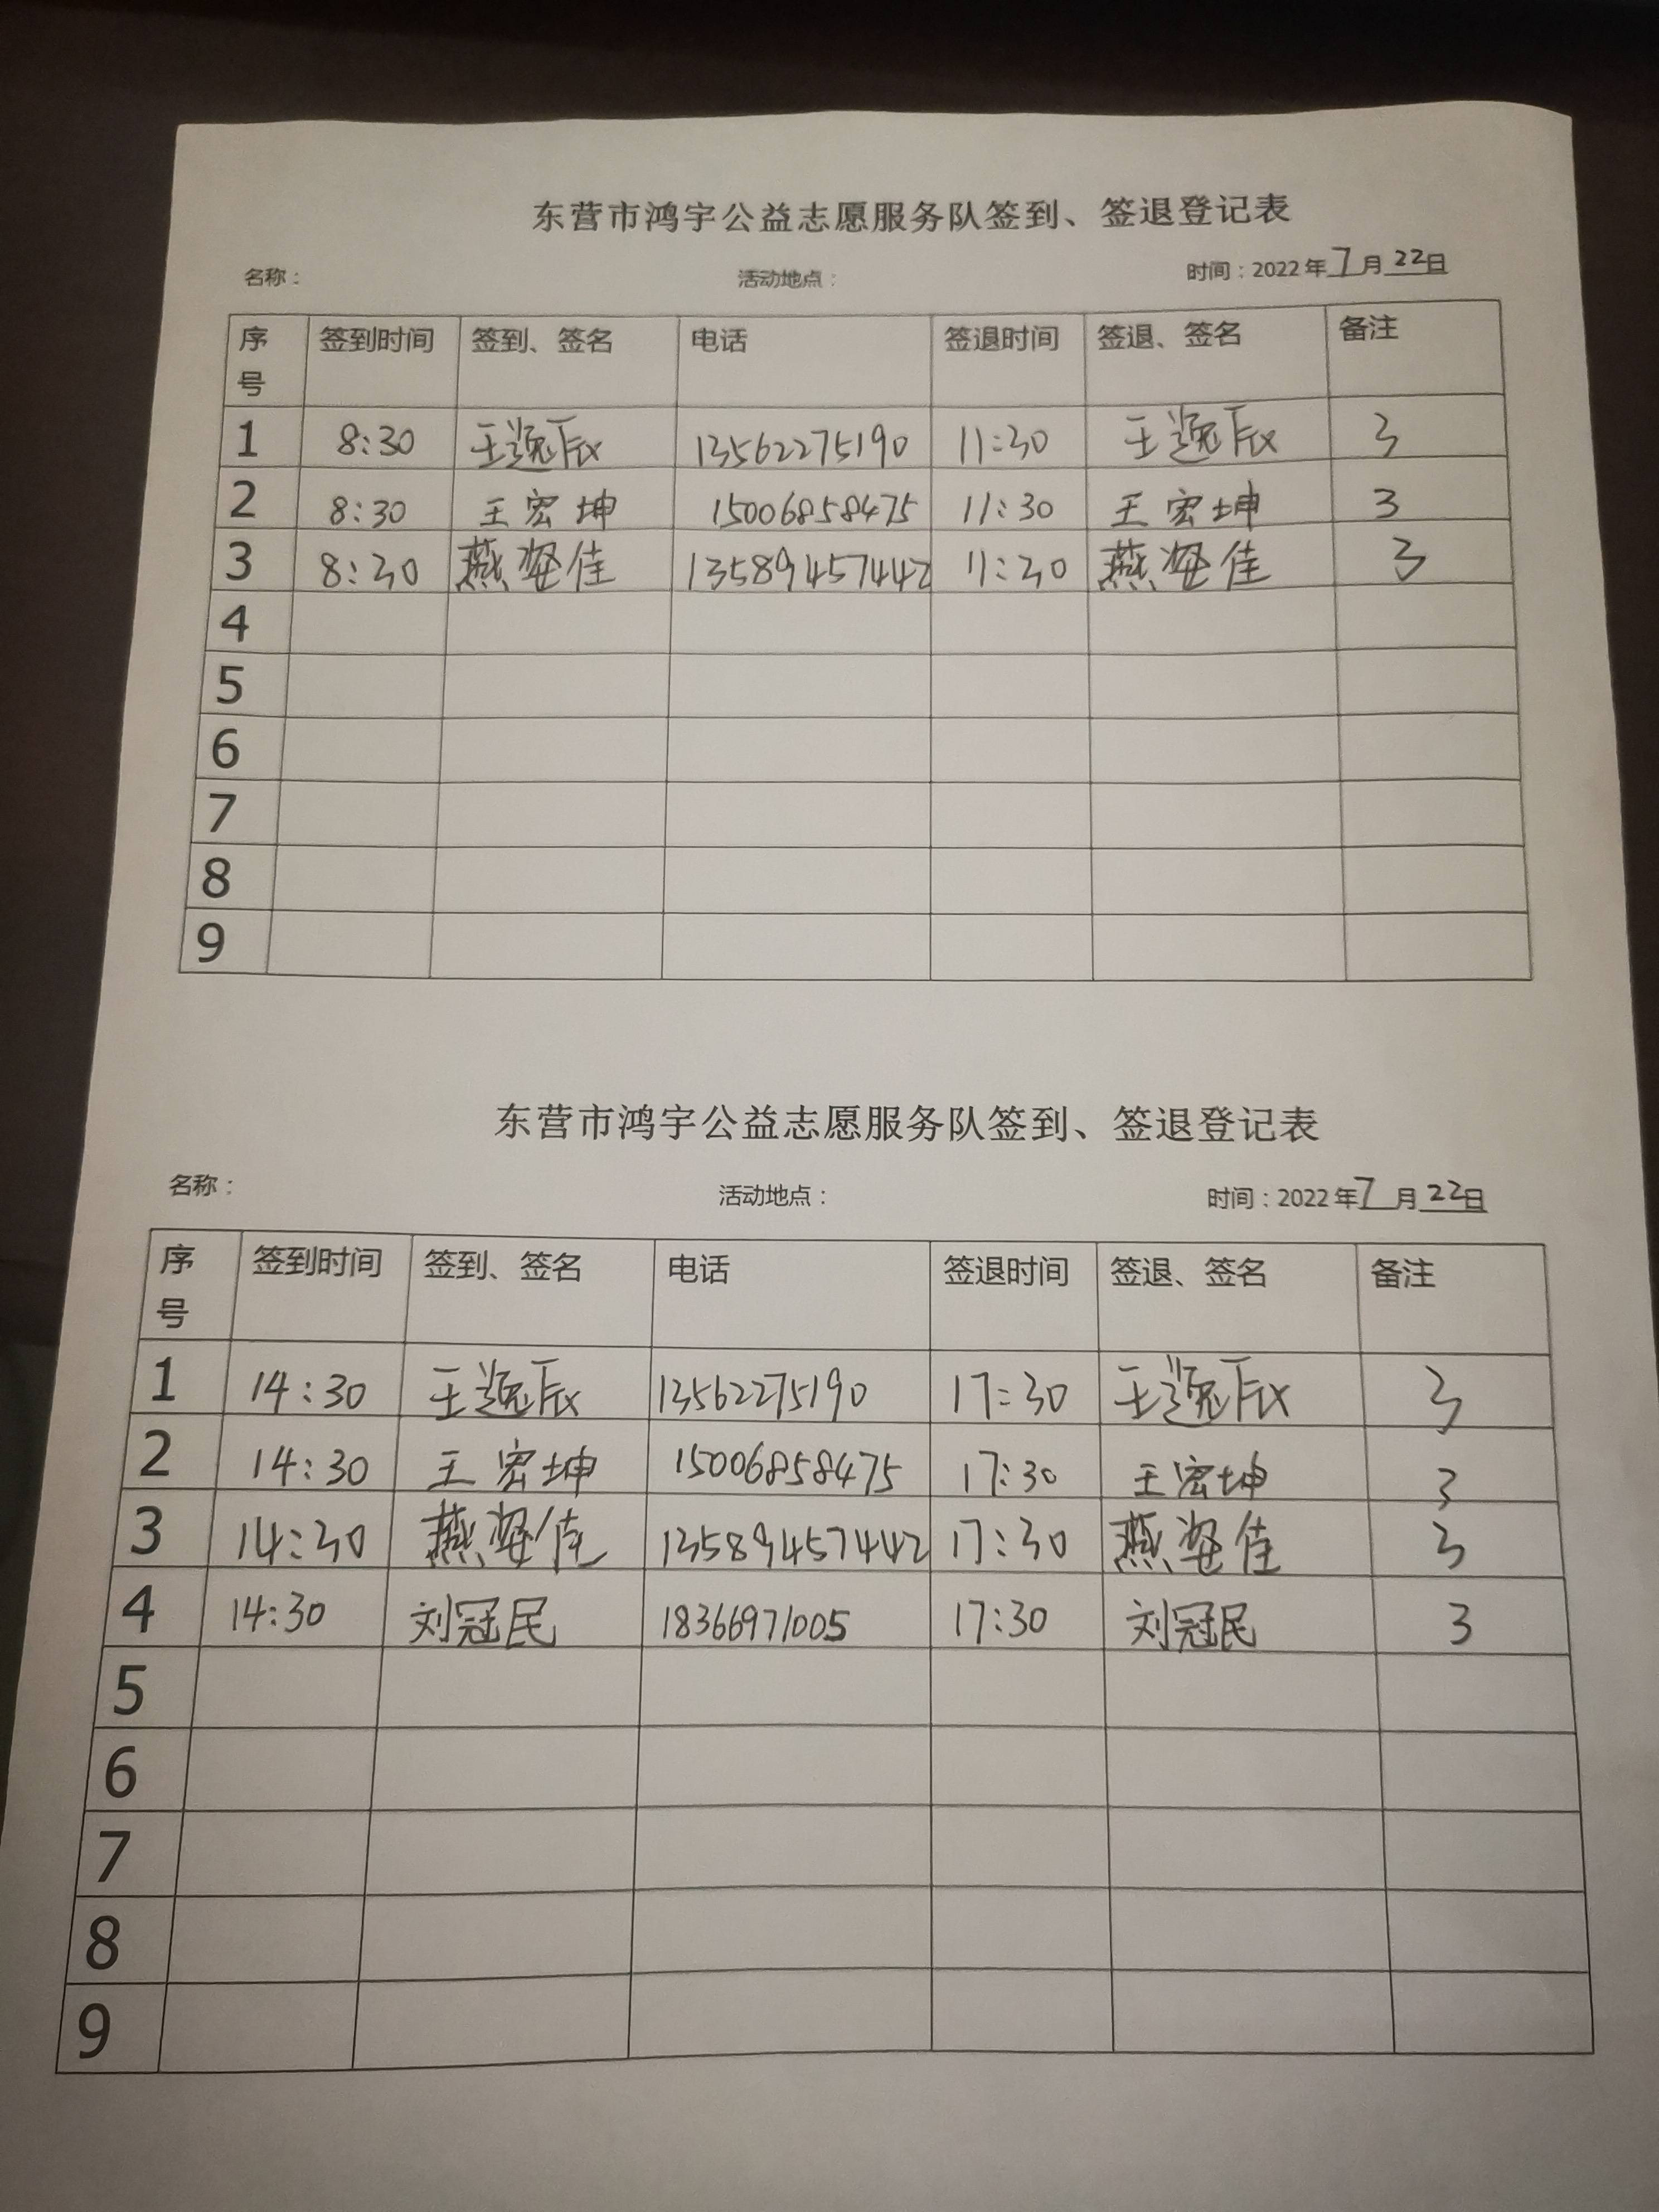 东营市鸿宇公益志愿服务队签到、签退登记表
名称： 活动地点： 时间：2022年7月22日
序号 签到时间 签到、签名 电话 签退时间 签退、签名 备注
1 8:30 王逸辰 13562275190 11:30 王逸辰 3
2 8:30 王宏坤 15006858475 11:30 王宏坤 3
3 8:30 燕姿佳 13589457442 11:30 燕姿佳 3
4
5
6
7
8
9
东营市鸿宇公益志愿服务队签到、签退登记表
名称： 活动地点： 时间：2022年7月22日
序号 签到时间 签到、签名 电话 签退时间 签退、签名 备注
1 14:30 王逸辰 13562275190 17:30 王逸辰 3
2 14:30 王宏坤 15006858475 17:30 王宏坤 3
3 14:30 燕 佳 13589457442 17:30 燕 佳 3
4 14:30 刘冠民 18366971005 17:30 刘冠民 3
5
6
7
8
9